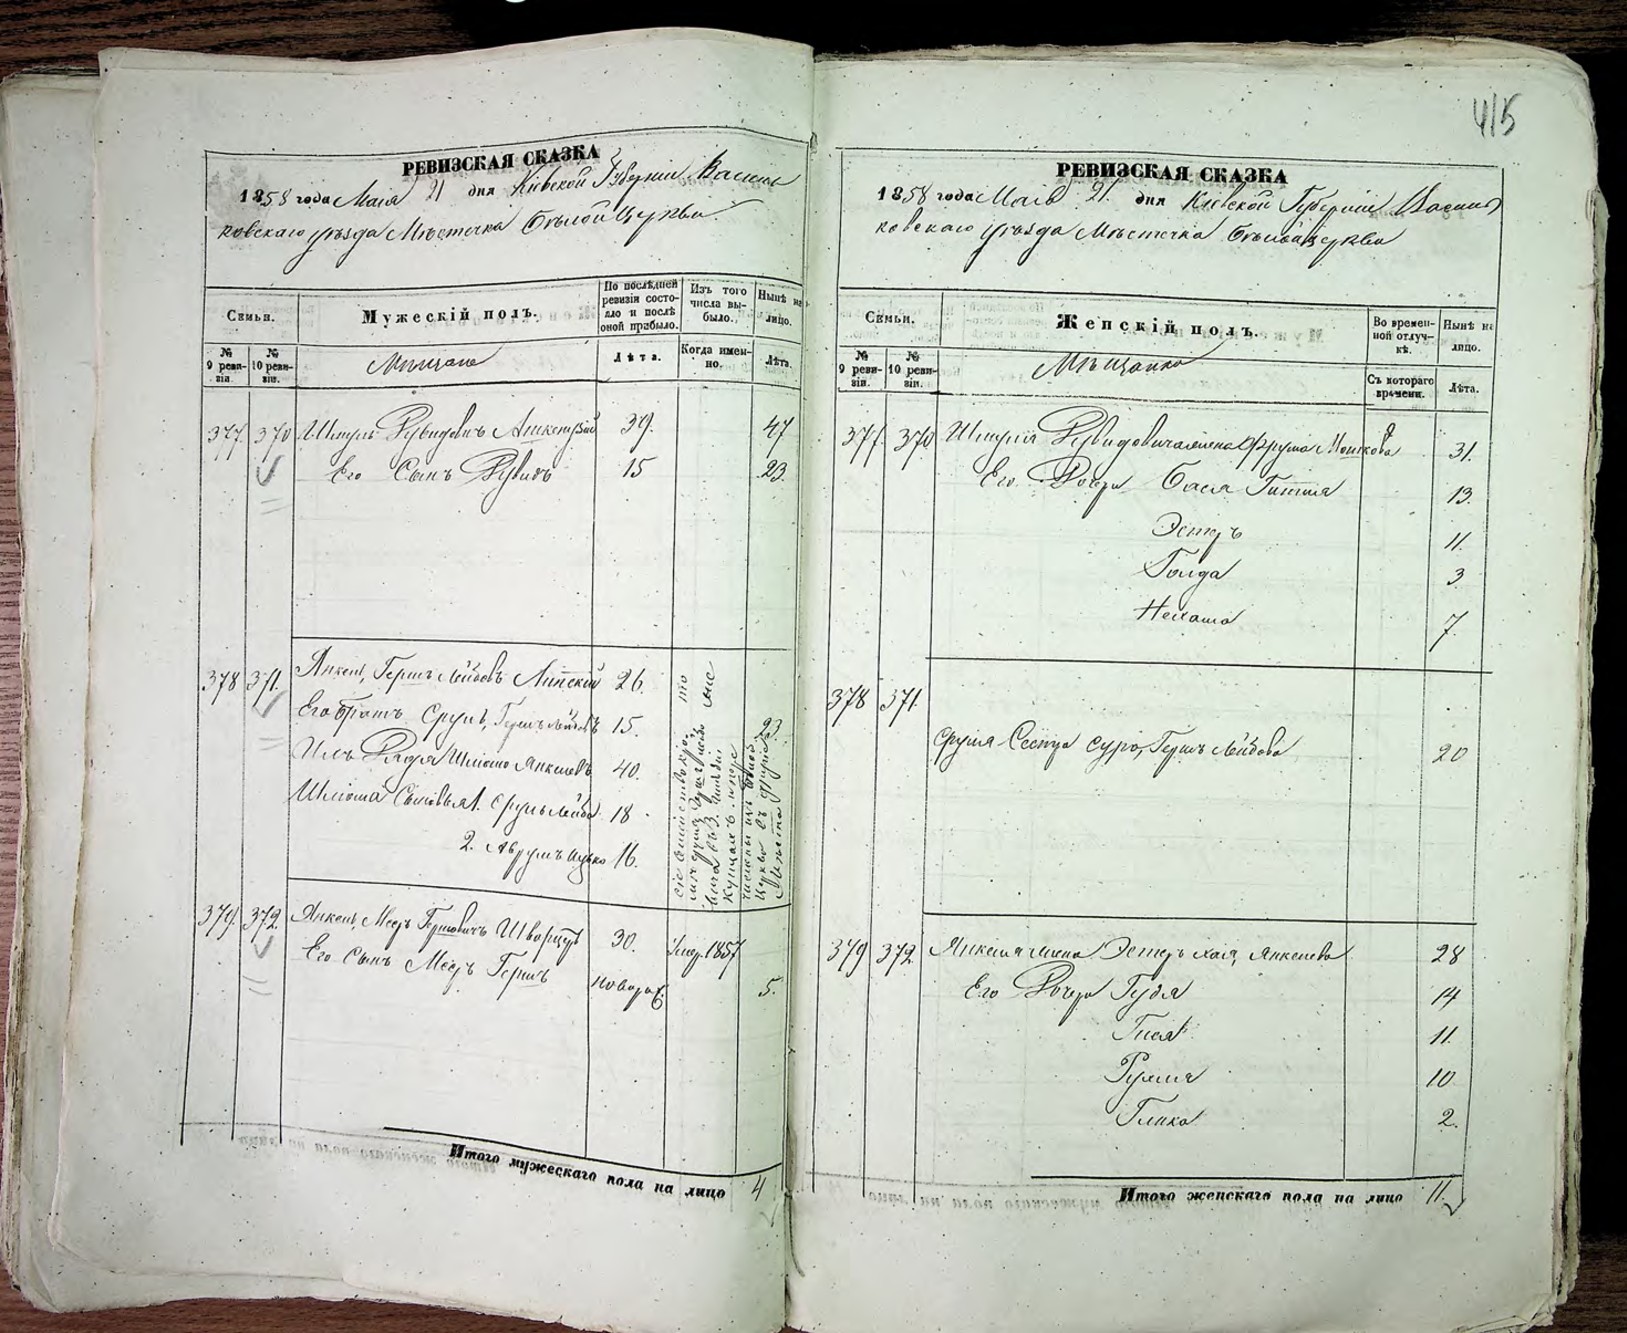 415
РЕВИЗСКАЯ СКАЗКА
1858 года Маія 21 дня Кіевской Губерніи Василь
ковскаго уѣзда Мѣстечка Бѣлой Церкви
Семьи.
Мужескій полъ.
По послѣдней ревизіи состояло и послѣ оной прибыло.
Изъ того числа выбыло.
Нынѣ на лицо.
№ 9 ревизіи.
№ 10 ревизіи.
Мѣщане
Лѣта.
Когда именно.
Лѣта.
377. 370 Шмуль Рувидовичъ 39. 47
Его Сынъ Рувидъ 15 23.
378 371. Янкель, Гершъ Лейбовъ Липскій 26.
Его братъ Сруль, Гершъ Лейбовъ 15. 23.
Ихъ Дядя Шлиома Янкелевъ 40.
Шлиома Сыновья 1. Срульлейба 18
2. Аврумъ Ицько 16.
379. 372. Янкель, Мееръ Гершовичъ Шварцъ 30. Умер. 1857
Его Сынъ Мееръ Гершъ новорож. 5.
Итого мужескаго пола на лицо 4
РЕВИЗСКАЯ СКАЗКА
1858 года Маія 21. дня Кіевской Губерніи Василь
ковскаго уѣзда Мѣстечка Бѣлой Церкви
Семьи.
Женскій полъ.
Во временной отлучкѣ.
Нынѣ на лицо.
№ 9 ревизіи.
№ 10 ревизіи.
Мѣщанки
Съ котораго времени.
Лѣта.
377. 370 Шмуля Рувидовича жена Фрума Мошкова 31.
Его Дочери Бася Гитля 13.
Эстеръ 11.
Голда 3
Нехама 7.
378 371.
Сруля Сестра Сура, Гершъ Лейбова 20
379 372 Янкеля жена Эстеръ Хая, Янкелева 28
Его Дочери Гудя 14
Гися 11.
Рухля 10
Глика 2.
Итого женскаго пола на лицо 11.